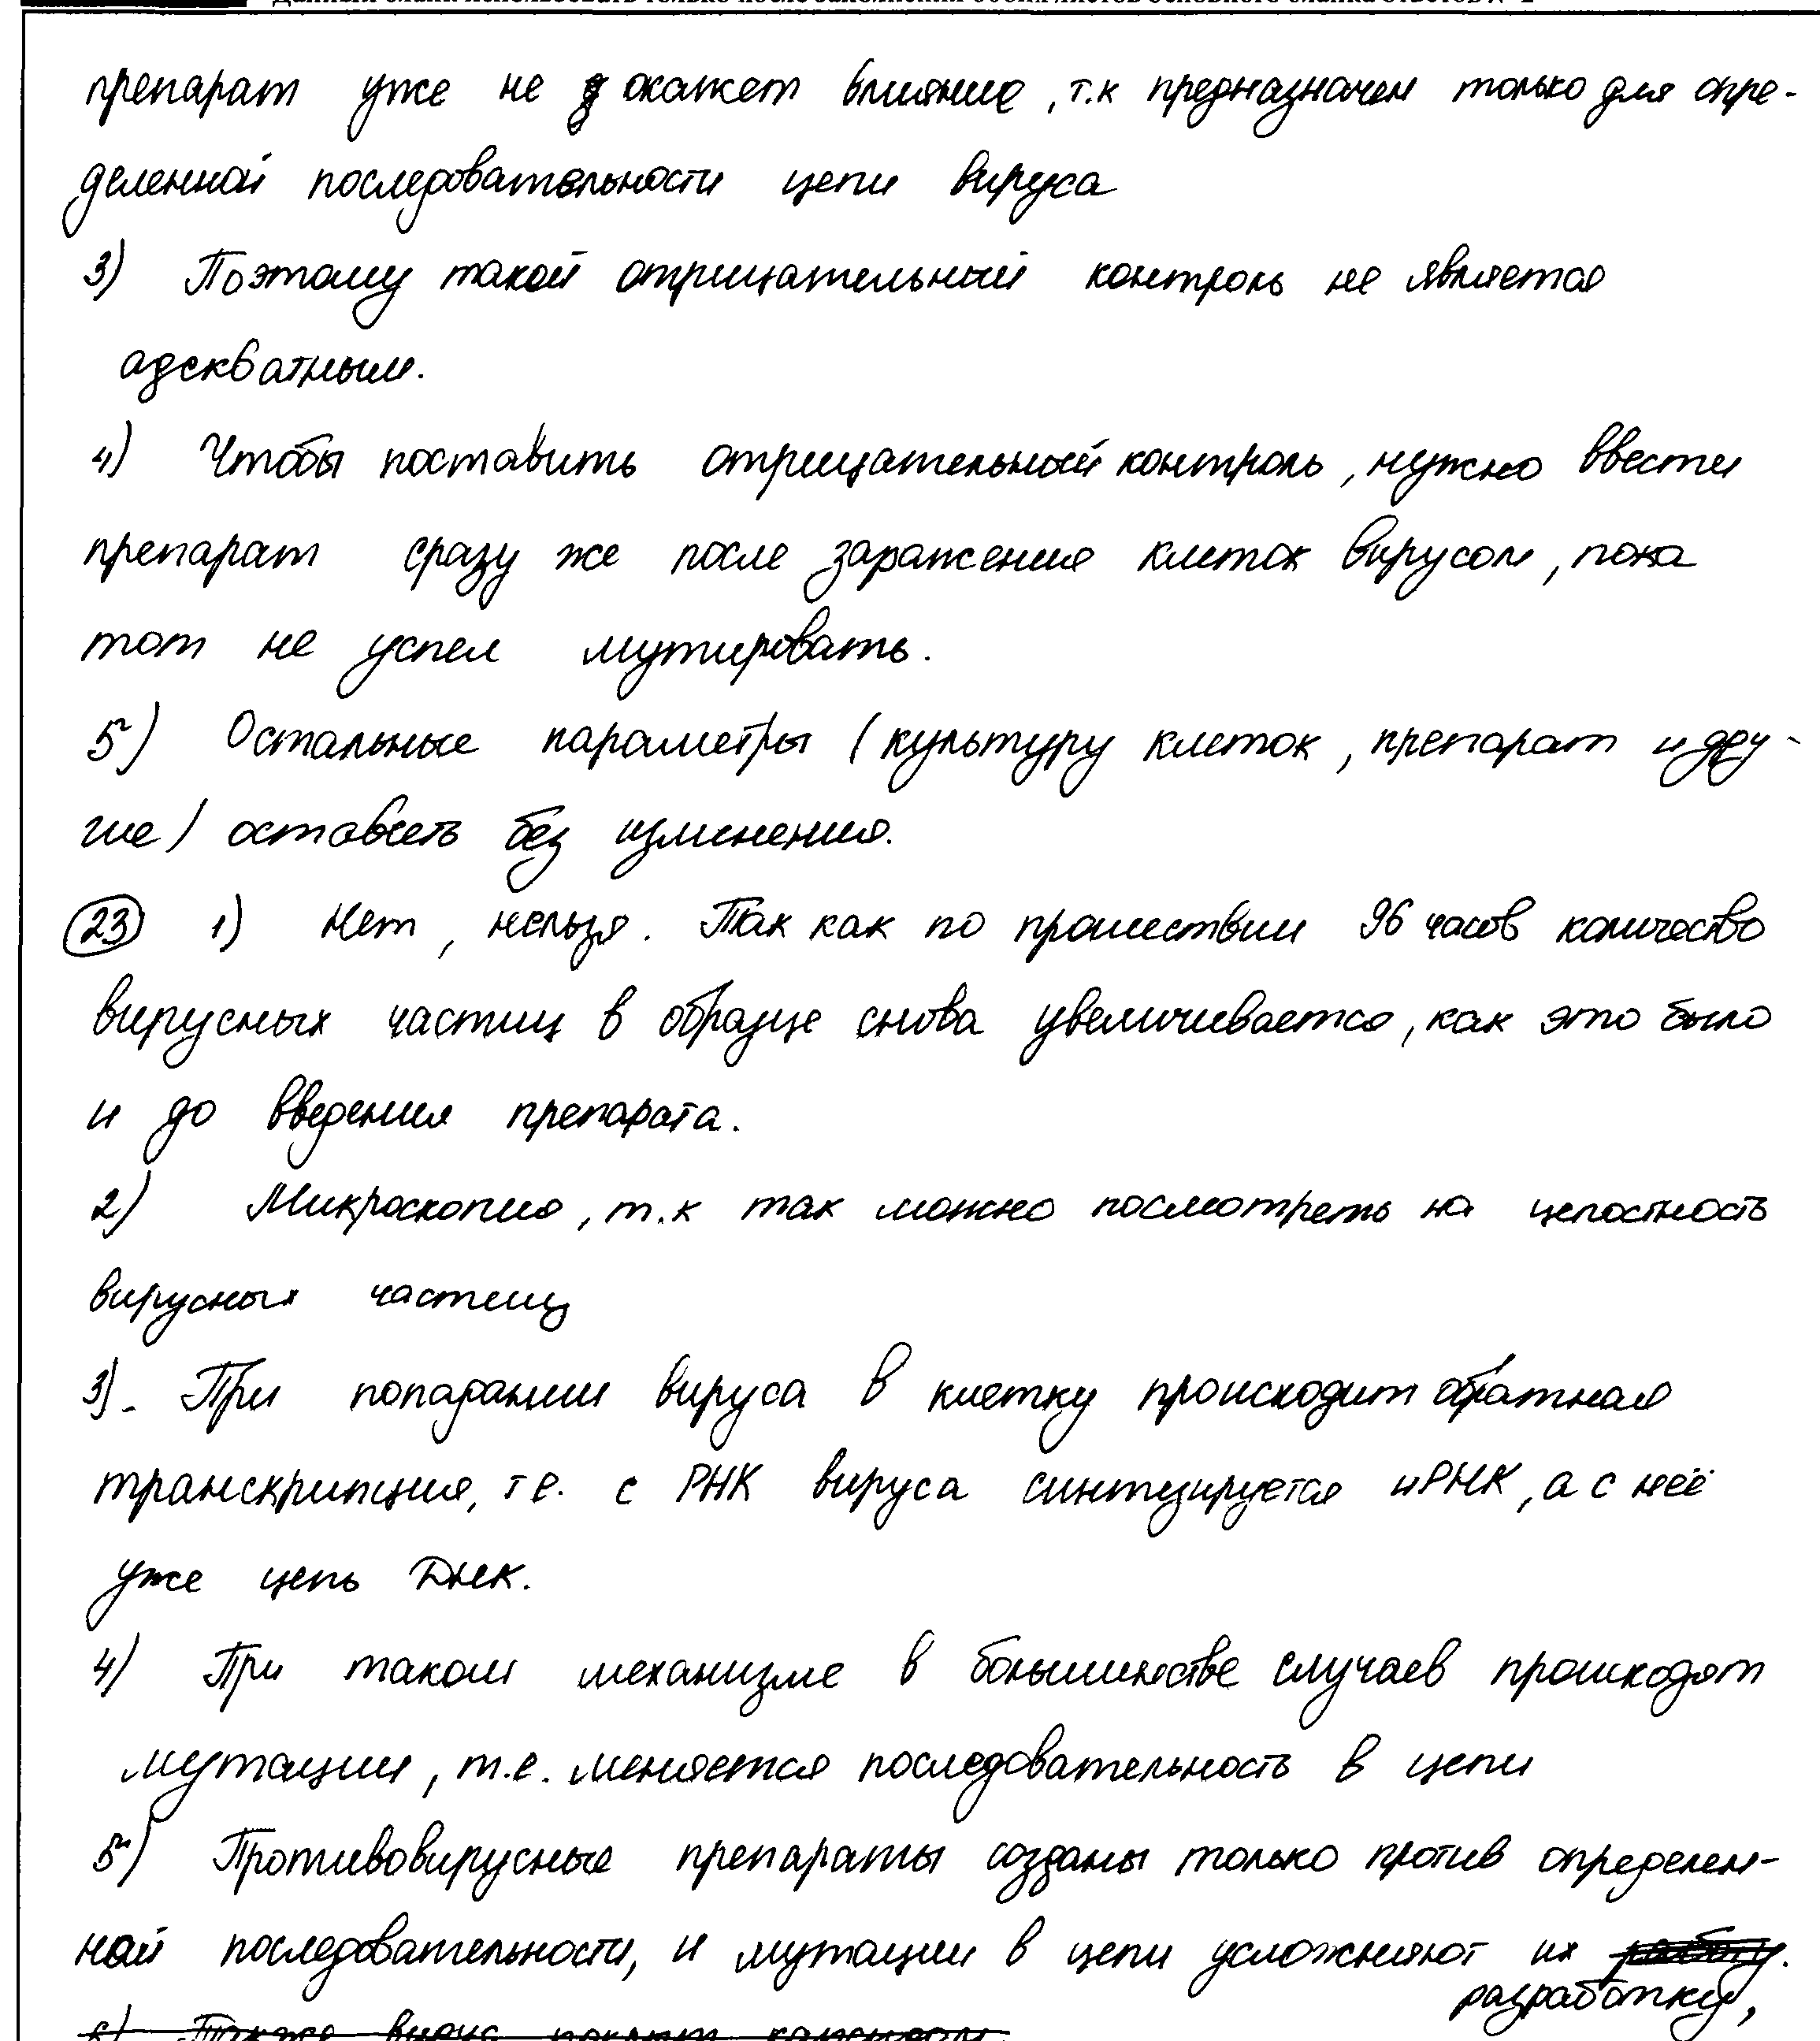 препарат уже не окажет влияние, т.к предназначен только для опре-
деленной последовательности цепи вируса
3) Поэтому такой отрицательный контроль не является
адекватным.
4) Чтобы поставить отрицательный контроль, нужно ввести
препарат сразу же после заражения клеток вирусом, пока
тот не успел мутировать.
5) Остальные параметры (культуру клеток, препарат и дру-
гие) оставить без изменения.
23 1) Нет, нельзя. Так как по прошествии 96 часов количество
вирусных частиц в образце снова увеличивается, как это было
и до введения препарата.
2) Микроскопию, т.к так можно посмотреть на целостность
вирусных частиц
3). При попадании вируса в клетку происходит обратная
транскрипция, т е. с РНК вируса синтезируется иРНК, а с неё
уже цепь ДНК.
4) При таком механизме в большинстве случаев происходят
мутации, т.е. меняется последовательность в цепи
5) Противовирусные препараты созданы только против определен-
ной последовательности, и мутации в цепи усложняют их
разработку,